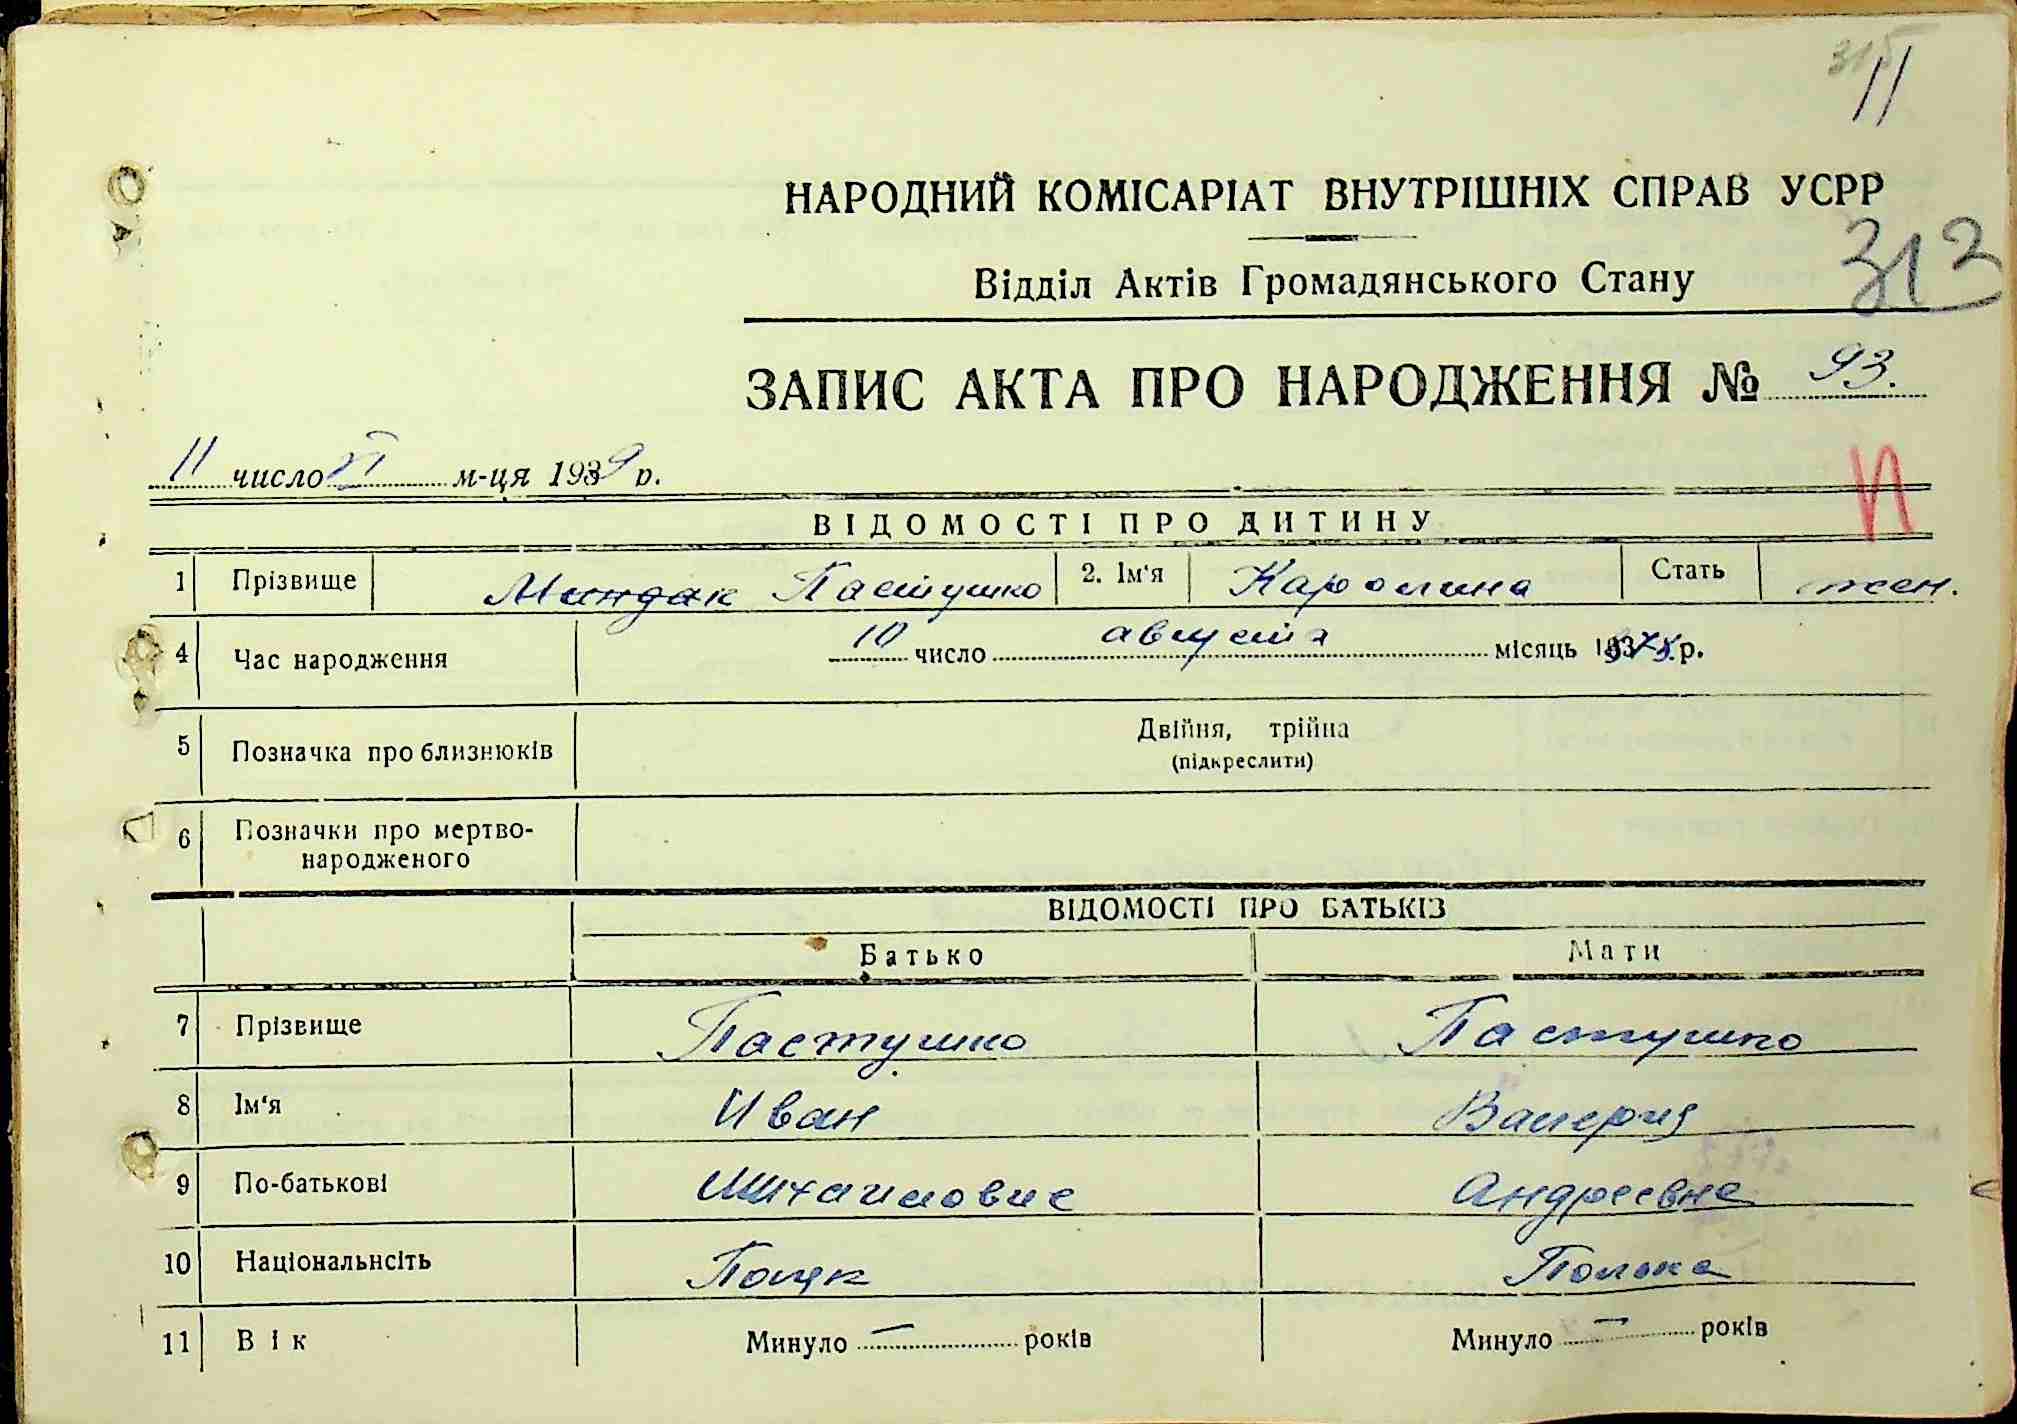 315
11
НАРОДНИЙ КОМІСАРІАТ ВНУТРІШНІХ СПРАВ УСРР
Відділ Актів Громадянського Стану
313
ЗАПИС АКТА ПРО НАРОДЖЕННЯ № 93.
11 число VI м-ця 1939 р.
П
ВІДОМОСТІ ПРО ДИТИНУ
1 Прізвище Миндак Пастушко 2. Ім'я Каролина Стать жен.
4 Час народження 10 число августа місяць р.
5 Позначка про близнюків Двійня, трійна
(підкреслити)
6 Позначки про мертво-
народженого
ВІДОМОСТІ ПРО БАТЬКІВ
Батько Мати
7 Прізвище Пастушко Пастушко
8 Ім'я Иван Валерия
9 По-батькові Михайлович Андреевна
10 Національнсіть Поляк Полька
11 Вік Минуло — років Минуло — років